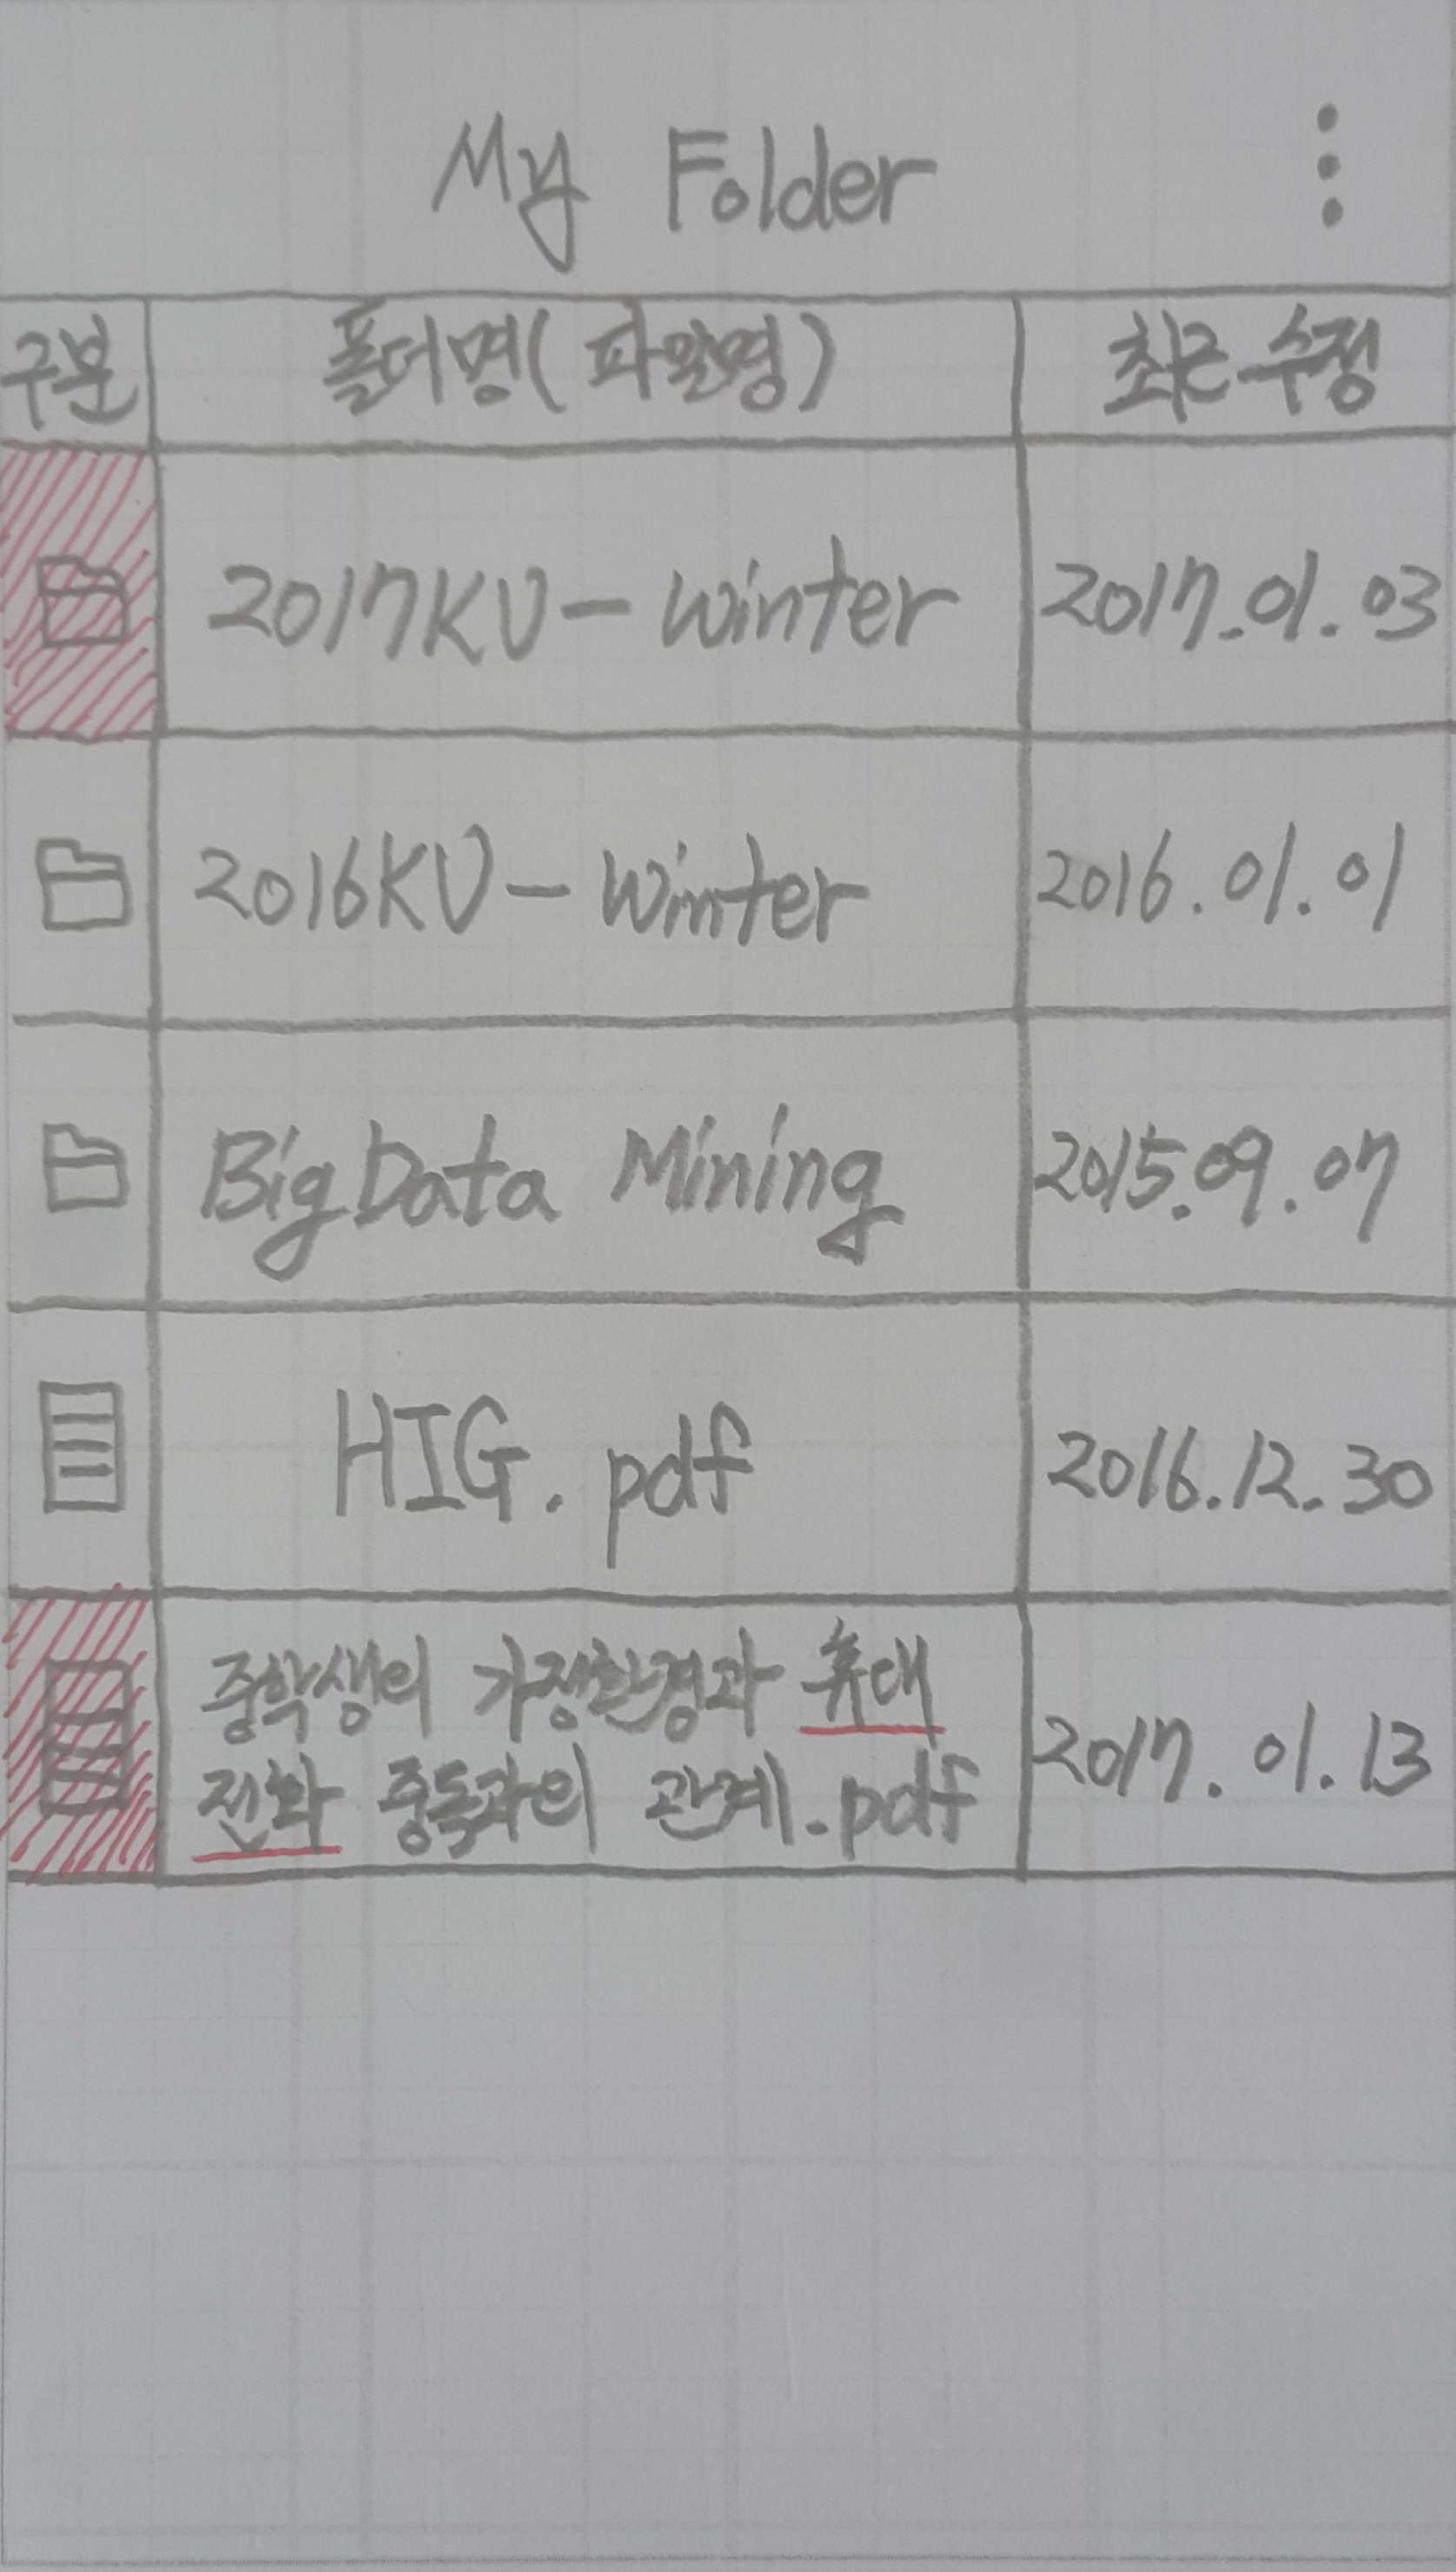 My Folder
구분 폴더명(파일명) 최근 수정
2017KU-winter 2017.01.03
2016KU-winter 2016.01.01
BigData Mining 2015.09.07
HIG.pdf 2016.12.30
중학생의 가정환경과 휴대
전화 중독과의 관계.pdf 2017.01.13